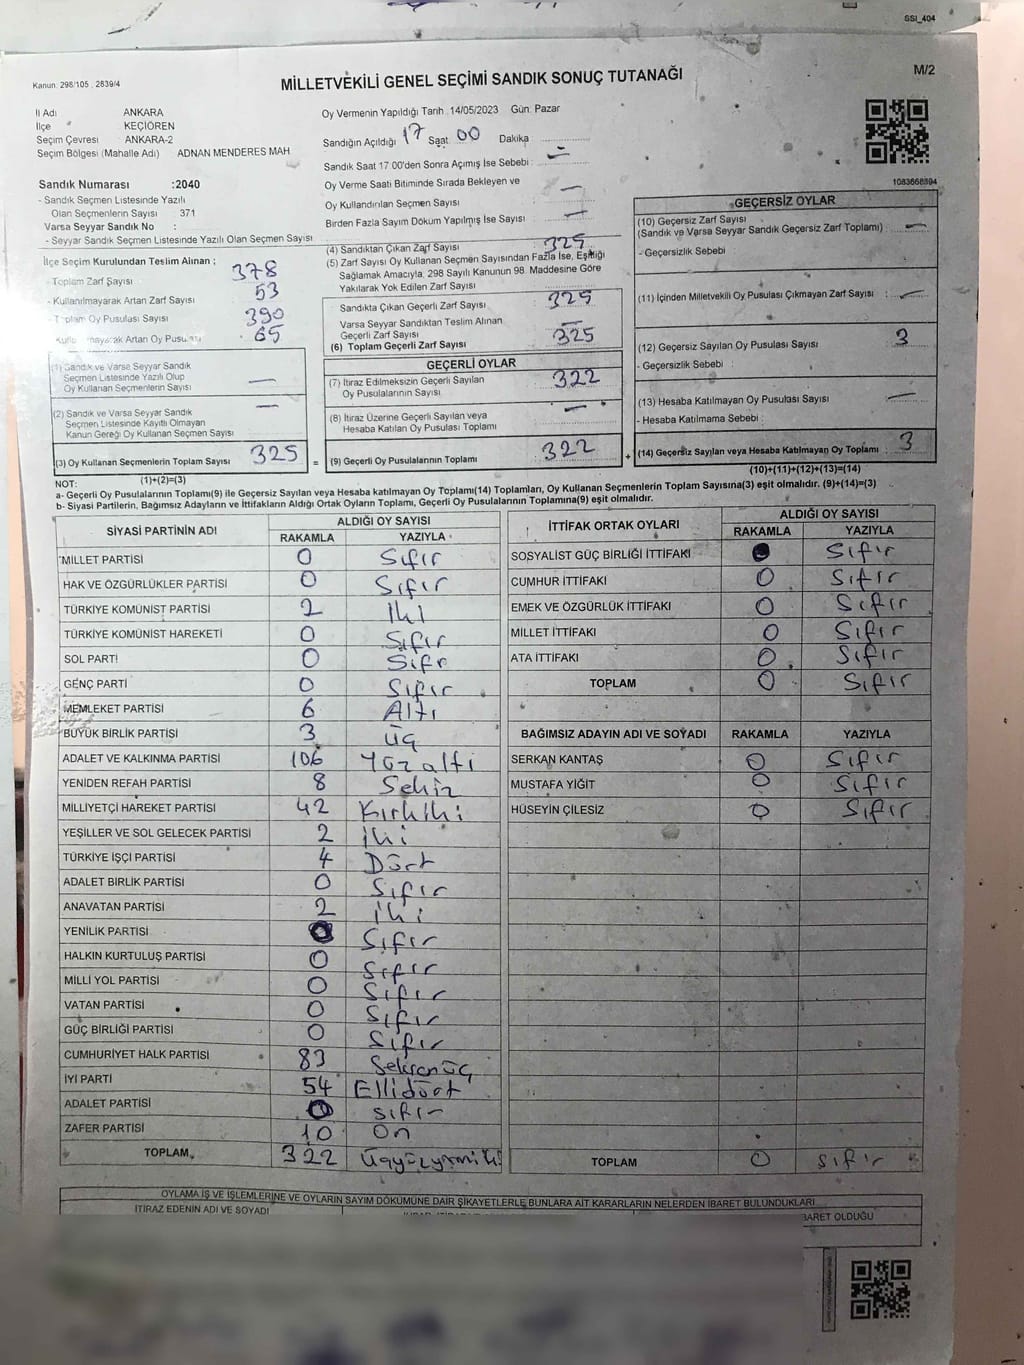 SSI_404
Kanun: 298/105 , 2839/4
MİLLETVEKİLİ GENEL SEÇİMİ SANDIK SONUÇ TUTANAĞI
M/2
İl Adı ANKARA
İlçe KEÇİÖREN
Seçim Çevresi ANKARA-2
Seçim Bölgesi (Mahalle Adı) ADNAN MENDERES MAH
Sandık Numarası :2040
- Sandık Seçmen Listesinde Yazılı
Olan Seçmenlerin Sayısı 371
Varsa Seyyar Sandık No :
- Seyyar Sandık Seçmen Listesinde Yazılı Olan Seçmen Sayısı
İlçe Seçim Kurulundan Teslim Alınan :
- Toplam Zarf Sayısı 378
- Kullanılmayarak Artan Zarf Sayısı 53
- Toplam Oy Pusulası Sayısı 390
Artan Oy 65
(1) Sandık ve Varsa Seyyar Sandık
Seçmen Listesinde Yazılı Olup
Oy Kullanan Seçmenlerin Sayısı —
(2) Sandık ve Varsa Seyyar Sandık
Seçmen Listesinde Kayıtlı Olmayan
Kanun Gereği Oy Kullanan Seçmen Sayısı —
(3) Oy Kullanan Seçmenlerin Toplam Sayısı 325
(1)+(2)=(3)
Oy Vermenin Yapıldığı Tarih :14/05/2023 Gün: Pazar
Sandığın Açıldığı 17 Saat 00 Dakika
Sandık Saat 17:00'den Sonra Açımış İse Sebebi : —
Oy Verme Saati Bitiminde Sırada Bekleyen ve
Oy Kullandırılan Seçmen Sayısı —
Birden Fazla Sayım Döküm Yapılmış İse Sayısı —
(4) Sandıktan Çıkan Zarf Sayısı 325
(5) Zarf Sayısı Oy Kullanan Seçmen Sayısından Fazla İse, Eşitliği
Sağlamak Amacıyla, 298 Sayılı Kanunun 98. Maddesine Göre
Yakılarak Yok Edilen Zarf Sayısı
Sandıkta Çıkan Geçerli Zarf Sayısı 325
Varsa Seyyar Sandıktan Teslim Alınan
Geçerli Zarf Sayısı —
(6) Toplam Geçerli Zarf Sayısı 325
GEÇERLİ OYLAR
(7) İtiraz Edilmeksizin Geçerli Sayılan
Oy Pusulalarının Sayısı 322
(8) İtiraz Üzerine Geçerli Sayılan veya
Hesaba Katılan Oy Pusulası Toplamı —
= (9) Geçerli Oy Pusulalarının Toplamı 322
1083668394
GEÇERSİZ OYLAR
(10) Geçersiz Zarf Sayısı
(Sandık ve Varsa Seyyar Sandık Geçersiz Zarf Toplamı) : —
- Geçersizlik Sebebi
(11) İçinden Milletvekili Oy Pusulası Çıkmayan Zarf Sayısı : —
(12) Geçersiz Sayılan Oy Pusulası Sayısı : 3
- Geçersizlik Sebebi :
(13) Hesaba Katılmayan Oy Pusulası Sayısı —
- Hesaba Katılmama Sebebi :
+ (14) Geçersiz Sayılan veya Hesaba Katılmayan Oy Toplamı : 3
(10)+(11)+(12)+(13)=(14)
NOT:
a- Geçerli Oy Pusulalarının Toplamı(9) ile Geçersiz Sayılan veya Hesaba katılmayan Oy Toplamı(14) Toplamları, Oy Kullanan Seçmenlerin Toplam Sayısına(3) eşit olmalıdır. (9)+(14)=(3)
b- Siyasi Partilerin, Bağımsız Adayların ve İttifakların Aldığı Ortak Oyların Toplamı, Geçerli Oy Pusulalarının Toplamına(9) eşit olmalıdır.
SİYASİ PARTİNİN ADI ALDIĞI OY SAYISI
RAKAMLA YAZIYLA
MİLLET PARTİSİ 0 Sıfır
HAK VE ÖZGÜRLÜKLER PARTİSİ 0 Sıfır
TÜRKİYE KOMÜNİST PARTİSİ 2 İki
TÜRKİYE KOMÜNİST HAREKETİ 0 Sıfır
SOL PARTİ 0 Sıfr
GENÇ PARTİ 0 Sıfır
MEMLEKET PARTİSİ 6 Altı
BÜYÜK BİRLİK PARTİSİ 3 üç
ADALET VE KALKINMA PARTİSİ 106 Yüzaltı
YENİDEN REFAH PARTİSİ 8 Sekiz
MİLLİYETÇİ HAREKET PARTİSİ 42 Kırkiki
YEŞİLLER VE SOL GELECEK PARTİSİ 2 iki
TÜRKİYE İŞÇİ PARTİSİ 4 Dört
ADALET BİRLİK PARTİSİ 0 Sıfır
ANAVATAN PARTİSİ 2 iki
YENİLİK PARTİSİ 0 Sıfır
HALKIN KURTULUŞ PARTİSİ 0 Sıfır
MİLLİ YOL PARTİSİ 0 Sıfır
VATAN PARTİSİ 0 Sıfır
GÜÇ BİRLİĞİ PARTİSİ 0 Sıfır
CUMHURİYET HALK PARTİSİ 83 Seksenüç
İYİ PARTİ 54 Ellidört
ADALET PARTİSİ 0 sıfır
ZAFER PARTİSİ 10 On
TOPLAM 322 üçyüzyirmiiki
İTTİFAK ORTAK OYLARI ALDIĞI OY SAYISI
RAKAMLA YAZIYLA
SOSYALİST GÜÇ BİRLİĞİ İTTİFAKI 0 Sıfır
CUMHUR İTTİFAKI 0 Sıfır
EMEK VE ÖZGÜRLÜK İTTİFAKI 0 Sıfır
MİLLET İTTİFAKI 0 Sıfır
ATA İTTİFAKI 0 Sıfır
TOPLAM 0 Sıfır
BAĞIMSIZ ADAYIN ADI VE SOYADI RAKAMLA YAZIYLA
SERKAN KANTAŞ 0 Sıfır
MUSTAFA YİĞİT 0 Sıfır
HÜSEYİN ÇİLESİZ 0 Sıfır
TOPLAM 0 Sıfır
OYLAMA İŞ VE İŞLEMLERİNE VE OYLARIN SAYIM DÖKÜMÜNE DAİR ŞİKAYETLERLE BUNLARA AİT KARARLARIN NELERDEN İBARET BULUNDUKLARI
İTİRAZ EDENİN ADI VE SOYADI
BARET OLDUĞU